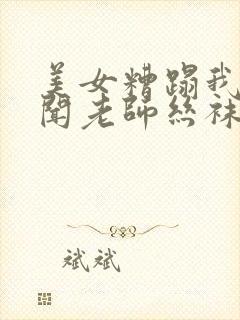 美女糟蹋我
聞老師絲袜
斌斌